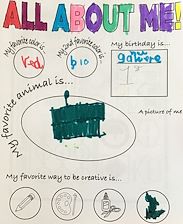 ALL ABOUT ME!
My favorite color is...
My 2nd favorite color is...
My birthday is...
red
My favorite animal is...
A picture of me
My favorite way to be creative is...